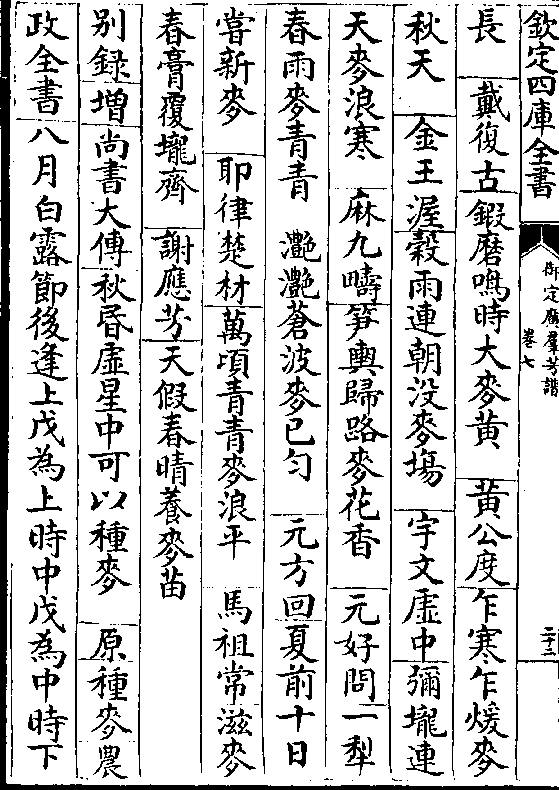 欽定四庫全書
御定廣羣芳譜
卷七
二十三
長　戴復古鍛磨鳴時大麥黄　黄公度乍寒乍煖麥
秋天　金王渥穀雨連朝没麥塲　宇文虛中彌壠連
天麥浪寒　麻九疇笋輿歸路麥花香　元好問一犁
春雨麥青青　灔灔蒼波麥已匀　元方回夏前十日
嘗新麥　耶律楚材萬頃青青麥浪平　馬祖常滋麥
春膏覆壠齊　謝應芳天假春晴養麥苗
别録增尚書大傳秋昏虛星中可以種麥　原種麥農
政全書八月白露節後逢上戊為上時中戊為中時下